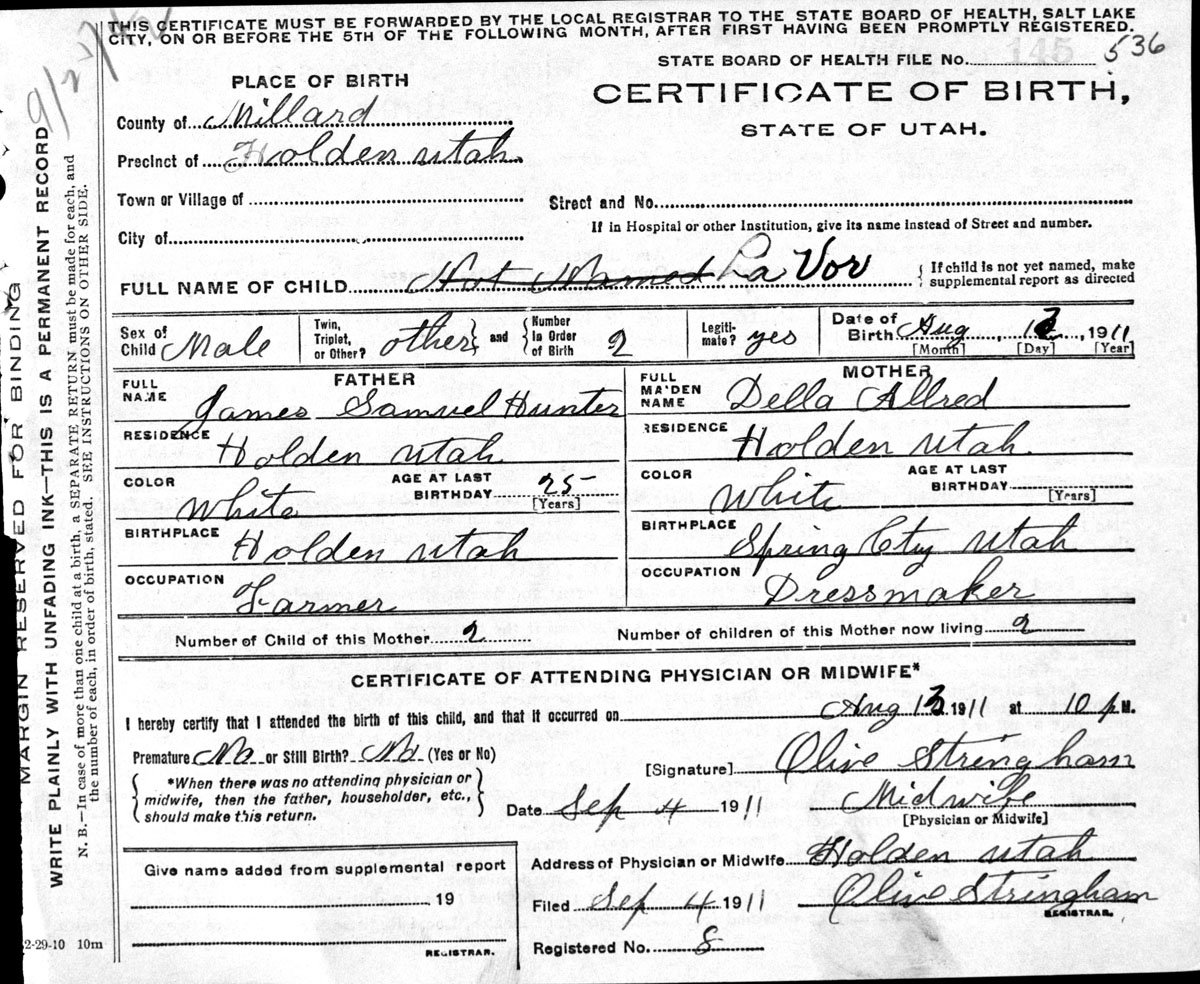 THIS CERTIFICATE MUST BE FORWARDED BY THE LOCAL REGISTRAR TO THE STATE BOARD OF HEALTH, SALT LAKE
CITY, ON OR BEFORE THE 5TH OF THE FOLLOWING MONTH, AFTER FIRST HAVING BEEN PROMPTLY REGISTERED.
STATE BOARD OF HEALTH FILE No. 536
PLACE OF BIRTH
CERTIFICATE OF BIRTH,
STATE OF UTAH.
County of Millard
Precinct of Holden Utah
Town or Village of
Street and No.
City of
If in Hospital or other Institution, give its name instead of Street and number.
FULL NAME OF CHILD Not Named La Vor
If child is not yet named, make
supplemental report as directed
Sex of Child Male
Twin, Triplet, or Other? other and Number in Order of Birth 2
Legiti-mate? yes
Date of Birth Aug 1911
[Month] [Day] [Year]
FATHER
FULL NAME James Samuel Hunter
RESIDENCE Holden Utah
COLOR White
AGE AT LAST BIRTHDAY 25
[Years]
BIRTHPLACE Holden Utah
OCCUPATION Farmer
MOTHER
FULL MAIDEN NAME Della Allred
RESIDENCE Holden Utah
COLOR White
AGE AT LAST BIRTHDAY
[Years]
BIRTHPLACE Spring Cty Utah
OCCUPATION Dressmaker
Number of Child of this Mother 2
Number of children of this Mother now living 2
CERTIFICATE OF ATTENDING PHYSICIAN OR MIDWIFE*
I hereby certify that I attended the birth of this child, and that it occurred on Aug 1911 at 10 p M.
Premature No or Still Birth? No (Yes or No)
*When there was no attending physician or
midwife, then the father, householder, etc.,
should make this return.
[Signature] Olive Stringham
Date Sep 4 1911
Midwife
[Physician or Midwife]
Give name added from supplemental report
19
REGISTRAR.
Address of Physician or Midwife Holden Utah
Filed Sep 4 1911 Olive Stringham
REGISTRAR.
Registered No. 8
2-29-10 10m
MARGIN RESERVED FOR BINDING
WRITE PLAINLY WITH UNFADING INK—THIS IS A PERMANENT RECORD
N. B.—In case of more than one child at a birth, a SEPARATE RETURN must be made for each, and
the number of each, in order of birth, stated. SEE INSTRUCTIONS ON OTHER SIDE.